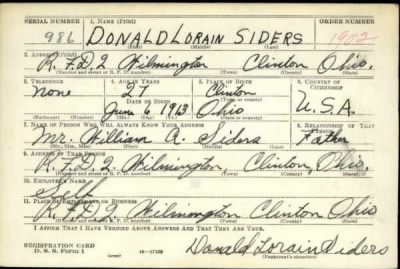 SERIAL NUMBER 1. NAME (Print) ORDER NUMBER
986 DONALD LORAIN SIDERS 1902
(First) (Middle) (Last)
2. ADDRESS (Print)
R.F.D 2 Wilmington Clinton Ohio.
(Number and street or R. F. D. number) (Town) (County) (State)
3. TELEPHONE 4. AGE IN YEARS 5. PLACE OF BIRTH 6. COUNTRY OF CITIZENSHIP
None 27 Clinton
DATE OF BIRTH (Town or county)
June 6 1913 Ohio U.S.A.
(Mo.) (Day) (Yr.) (State or country)
7. NAME OF PERSON WHO WILL ALWAYS KNOW YOUR ADDRESS 8. RELATIONSHIP OF THAT PERSON
Mr. William A. Siders Father
(Mr., Mrs., Miss) (First) (Middle) (Last)
9. ADDRESS OF THAT PERSON
R.F.D 2 Wilmington, Clinton, Ohio.
(Number and street or R. F. D. number) (Town) (County) (State)
10. EMPLOYER'S NAME
Self
11. PLACE OF EMPLOYMENT OR BUSINESS
R.F.D 2 Wilmington Clinton Ohio
(Number and street or R. F. D. number) (Town) (County) (State)
I AFFIRM THAT I HAVE VERIFIED ABOVE ANSWERS AND THAT THEY ARE TRUE.
REGISTRATION CARD
D. S. S. Form 1 (over) Donald Lorain Siders
(Registrant's signature)